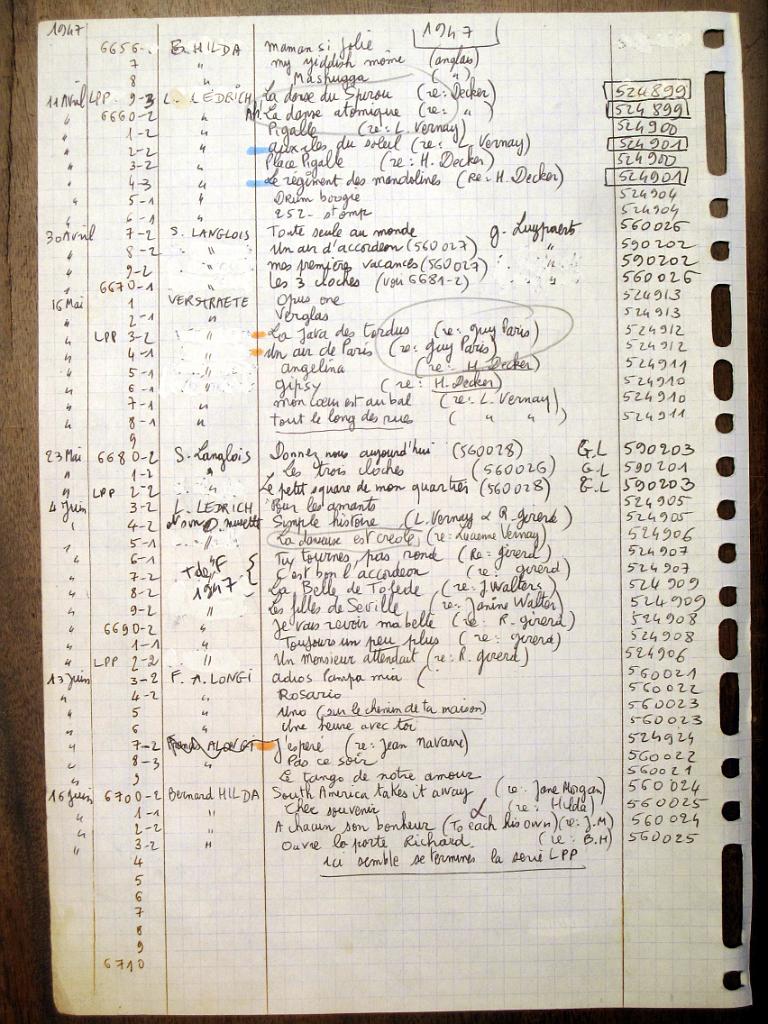 1947 1947
6656-. B. HILDA maman si jolie
7 " my yiddish mome (anglais)
8 " Mashugga (")
11 Avril LPP. 9-3 L. LEDRICH La danse du Spirou (re: Decker) 524899
" 6660-2 " La danse atomique (re: ") 524899
" 1-2 " Pigalle (re: L. Vernay) 524900
" 2-2 " aux iles du soleil (re: L. Vernay) 524901
" 3-2 " Place Pigalle (re: H. Decker) 524900
" 4-3 " Le régiment des mandolines (Re: H. Decker) 524901
" 5-1 " Drum boogie 524904
" 6-1 " 252- stomp 524904
30 Avril 7-2 S. LANGLOIS Toute seule au monde g. Luypaerts 560026
" 8-2 " Un air d'accordeon (560027) " 590202
" 9-2 " mes premières vacances (560027) " 590202
" 6670-1 " Les 3 cloches (voir 6681-2) " 560026
16 Mai 1 VERSTRAETE Opus one 524913
" 2-1 " Verglas 524913
" LPP 3-2 " La Java des tordus (re: guy Paris) 524912
" 4-1 " Un air de Paris (re: guy Paris) 524912
" 5-1 " angelina (re: H. Decker) 524911
" 6-1 " gipsy (re: H. Decker) 524910
" 7-1 " mon cœur est au bal (re: L. Vernay) 524910
" 8-1 " tout le long des rues (" ") 524911
9
23 Mai 6680-2 S. Langlois Donnez nous aujourd'hui (560028) G.L 590203
" 1-2 " Les trois cloches (560026) G.L 590201
" LPP 2-2 " Le petit square de mon quartier (560028) G.L 590203
4 Juin 3-2 L. LEDRICH Pour les amants 524905
" 4-2 Simple histoire (L. Vernay & R. girerd) 524905
" 5-1 " La danseuse est créole (re: Lucienne Vernay) 524906
6-1 " Tu tournes, pas rond (Re: girerd) 524907
7-2 + de F 1947 C'est bon l'accordeon (re: girerd) 524907
8-2 " La Belle de Tolède (re: J Walters) 524909
9-2 " Les filles de Seville (re: Janine Walter) 524909
6690-2 " Je vais revoir ma belle (re: R. girerd) 524908
1-1 " Toujours un peu plus (re: girerd) 524908
" LPP 2-2 " Un monsieur attendait (re: R. girerd) 524906
13 Juin 3-2 F. A. LONGI adios Pampa mia ( 560021
" 4-2 " Rosario 560022
" 5 " Uno (sur le chemin de ta maison) 560023
" 6 " Une heure avec toi 560023
" 7-2 J'espère (re: Jean Navarre) 524924
" 8-3 " Pas ce soir 560022
" 9 Le tango de notre amour 560021
16 juin 6700-2 Bernard HILDA South America takes it away (re: Jane Morgan) 560024
" 1-1 " Cher souvenir (re: Hilda) 560025
" 2-2 " A chacun son bonheur (To each his own) (re: J.M) 560024
" 3-2 " Ouvre la porte Richard (re: B.H) 560025
4 ici semble se terminer la serie LPP
5
6
7
8
9
6710